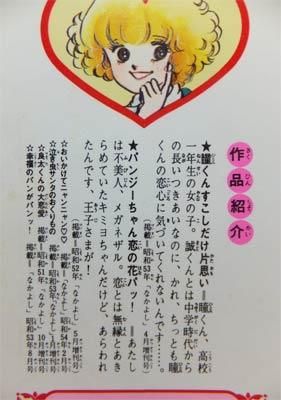 作品紹介
★瞳くんすこしだけ片思い=瞳くん、高校
一年生の女の子。誠くんとは中学時代から
の長いつきあいなのに、かれ、ちっとも瞳
くんの恋心に気づいてくれないんです……。
掲載=昭和53年「なかよし」4月増刊号
★パンジーちゃん恋の花パッ!=あたし
は不美人、メガネザル。恋とは無縁とあき
らめていたキミヨちゃんだけど、あらわれ
たんです、王子さまが!
掲載=昭和52年「なかよし」5月増刊号
☆おいかけてニャンニャン♡♡ 掲載=昭和54年2月号
☆泣き虫サンタのおくりもの 掲載=昭和53年「なかよし」1月増刊号
☆良太くんの大恋愛 掲載=昭和51年「なかよし」10月増刊号
☆幸福のパンがパンッ! 掲載=「なかよし」昭和53年8月号